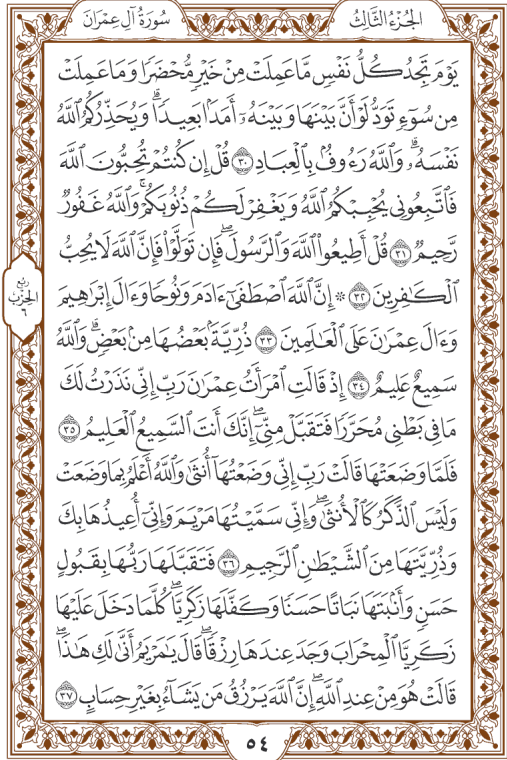 الجُزْءُ الثَّالِثُ
سُورَةُ آلِ عِمْرَانَ
يَوْمَ تَجِدُ كُلُّ نَفْسٍ مَّا عَمِلَتْ مِنْ خَيْرٍ مُّحْضَرًا وَمَا عَمِلَتْ
مِن سُوٓءٍ تَوَدُّ لَوْ أَنَّ بَيْنَهَا وَبَيْنَهُۥٓ أَمَدَۢا بَعِيدًاۗ وَيُحَذِّرُكُمُ ٱللَّهُ
نَفْسَهُۥۗ وَٱللَّهُ رَءُوفُۢ بِٱلْعِبَادِ ٣٠ قُلْ إِن كُنتُمْ تُحِبُّونَ ٱللَّهَ
فَٱتَّبِعُونِي يُحْبِبْكُمُ ٱللَّهُ وَيَغْفِرْ لَكُمْ ذُنُوبَكُمْۚ وَٱللَّهُ غَفُورٌ
رَّحِيمٌ ٣١ قُلْ أَطِيعُوا۟ ٱللَّهَ وَٱلرَّسُولَۖ فَإِن تَوَلَّوْا۟ فَإِنَّ ٱللَّهَ لَا يُحِبُّ
ٱلْكَٰفِرِينَ ٣٢ ۞ إِنَّ ٱللَّهَ ٱصْطَفَىٰٓ ءَادَمَ وَنُوحًا وَءَالَ إِبْرَٰهِيمَ
وَءَالَ عِمْرَٰنَ عَلَى ٱلْعَٰلَمِينَ ٣٣ ذُرِّيَّةَۢ بَعْضُهَا مِنۢ بَعْضٍۗ وَٱللَّهُ
سَمِيعٌ عَلِيمٌ ٣٤ إِذْ قَالَتِ ٱمْرَأَتُ عِمْرَٰنَ رَبِّ إِنِّي نَذَرْتُ لَكَ
مَا فِي بَطْنِي مُحَرَّرًا فَتَقَبَّلْ مِنِّيٓۖ إِنَّكَ أَنتَ ٱلسَّمِيعُ ٱلْعَلِيمُ ٣٥
فَلَمَّا وَضَعَتْهَا قَالَتْ رَبِّ إِنِّي وَضَعْتُهَآ أُنثَىٰ وَٱللَّهُ أَعْلَمُ بِمَا وَضَعَتْ
وَلَيْسَ ٱلذَّكَرُ كَٱلْأُنثَىٰۖ وَإِنِّي سَمَّيْتُهَا مَرْيَمَ وَإِنِّيٓ أُعِيذُهَا بِكَ
وَذُرِّيَّتَهَا مِنَ ٱلشَّيْطَٰنِ ٱلرَّجِيمِ ٣٦ فَتَقَبَّلَهَا رَبُّهَا بِقَبُولٍ
حَسَنٍ وَأَنۢبَتَهَا نَبَاتًا حَسَنًا وَكَفَّلَهَا زَكَرِيَّاۖ كُلَّمَا دَخَلَ عَلَيْهَا
زَكَرِيَّا ٱلْمِحْرَابَ وَجَدَ عِندَهَا رِزْقًاۖ قَالَ يَٰمَرْيَمُ أَنَّىٰ لَكِ هَٰذَاۖ
قَالَتْ هُوَ مِنْ عِندِ ٱللَّهِۖ إِنَّ ٱللَّهَ يَرْزُقُ مَن يَشَآءُ بِغَيْرِ حِسَابٍ ٣٧
ربع
الحزب
٦
٥٤